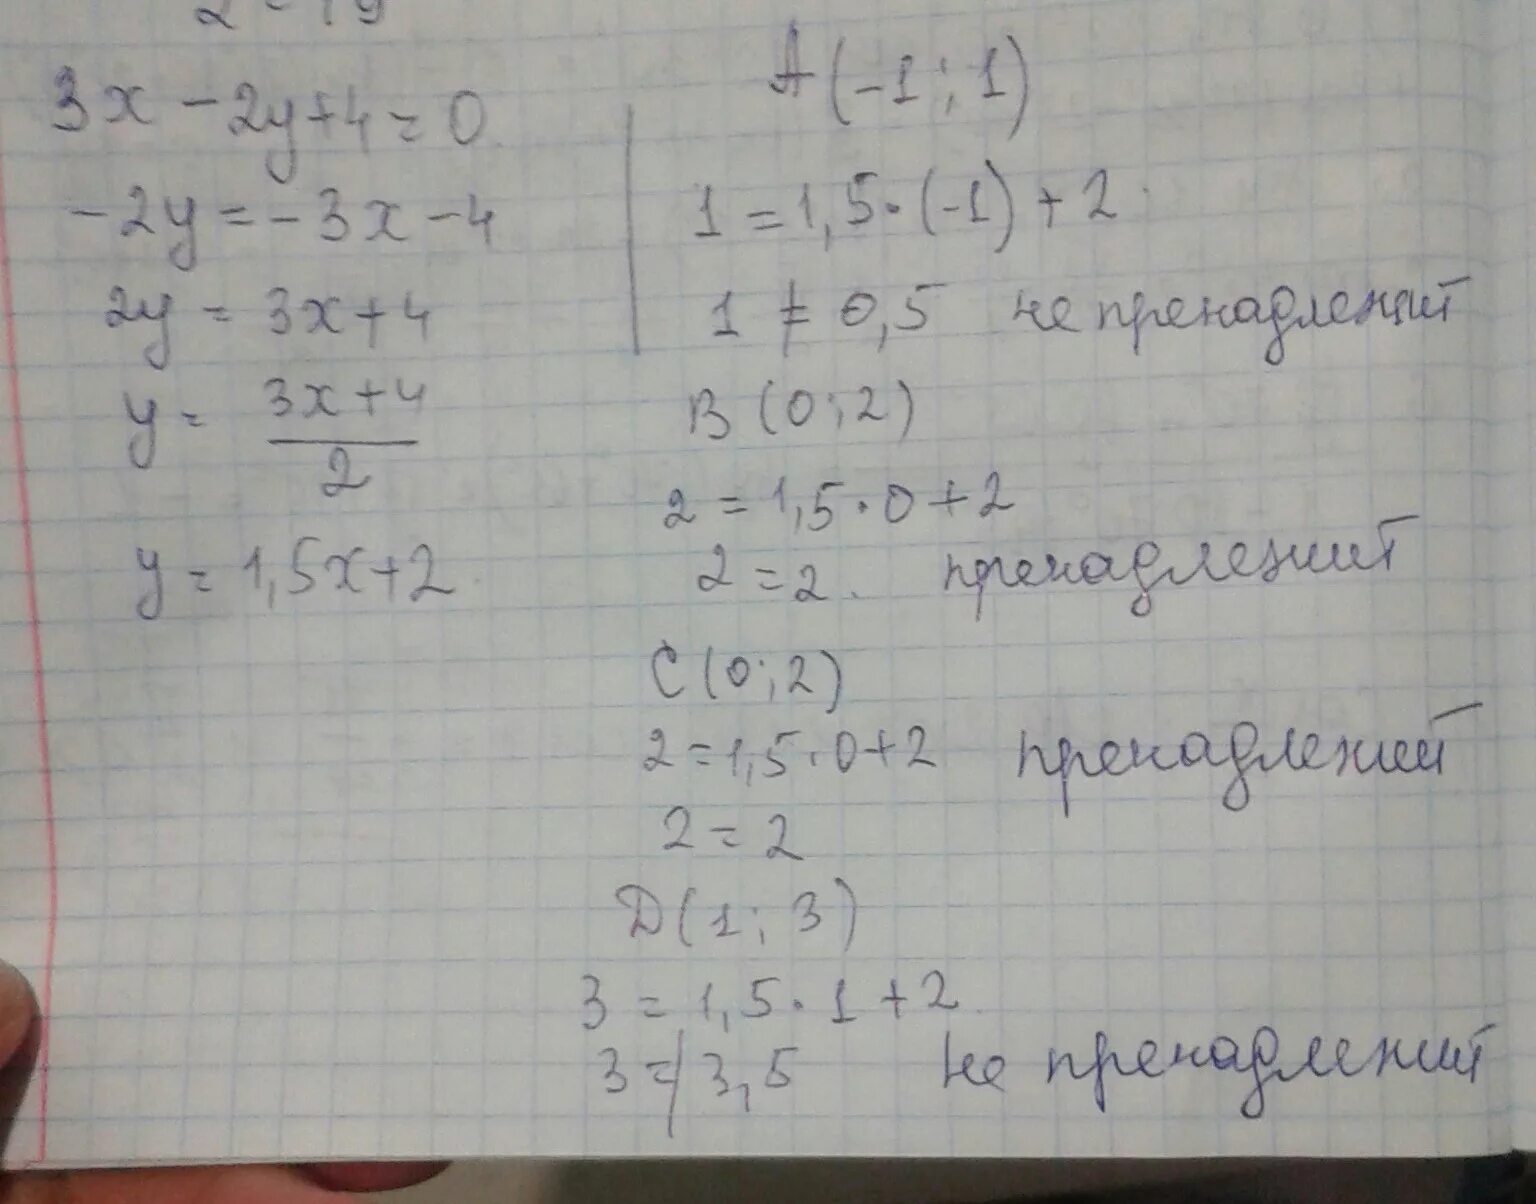 3x - 2y + 4 = 0
-2y = -3x - 4
2y = 3x + 4
y = 3x + 4
2
y = 1,5x + 2
A (-1; 1)
1 = 1,5 · (-1) + 2
1 ≠ 0,5 не пренадлежит
B (0; 2)
2 = 1,5 · 0 + 2
2 = 2. пренадлежит
C (0; 2)
2 = 1,5 · 0 + 2 пренадлежит
2 = 2
D (1; 3)
3 = 1,5 · 1 + 2
3 ≠ 3,5 не пренадлежит